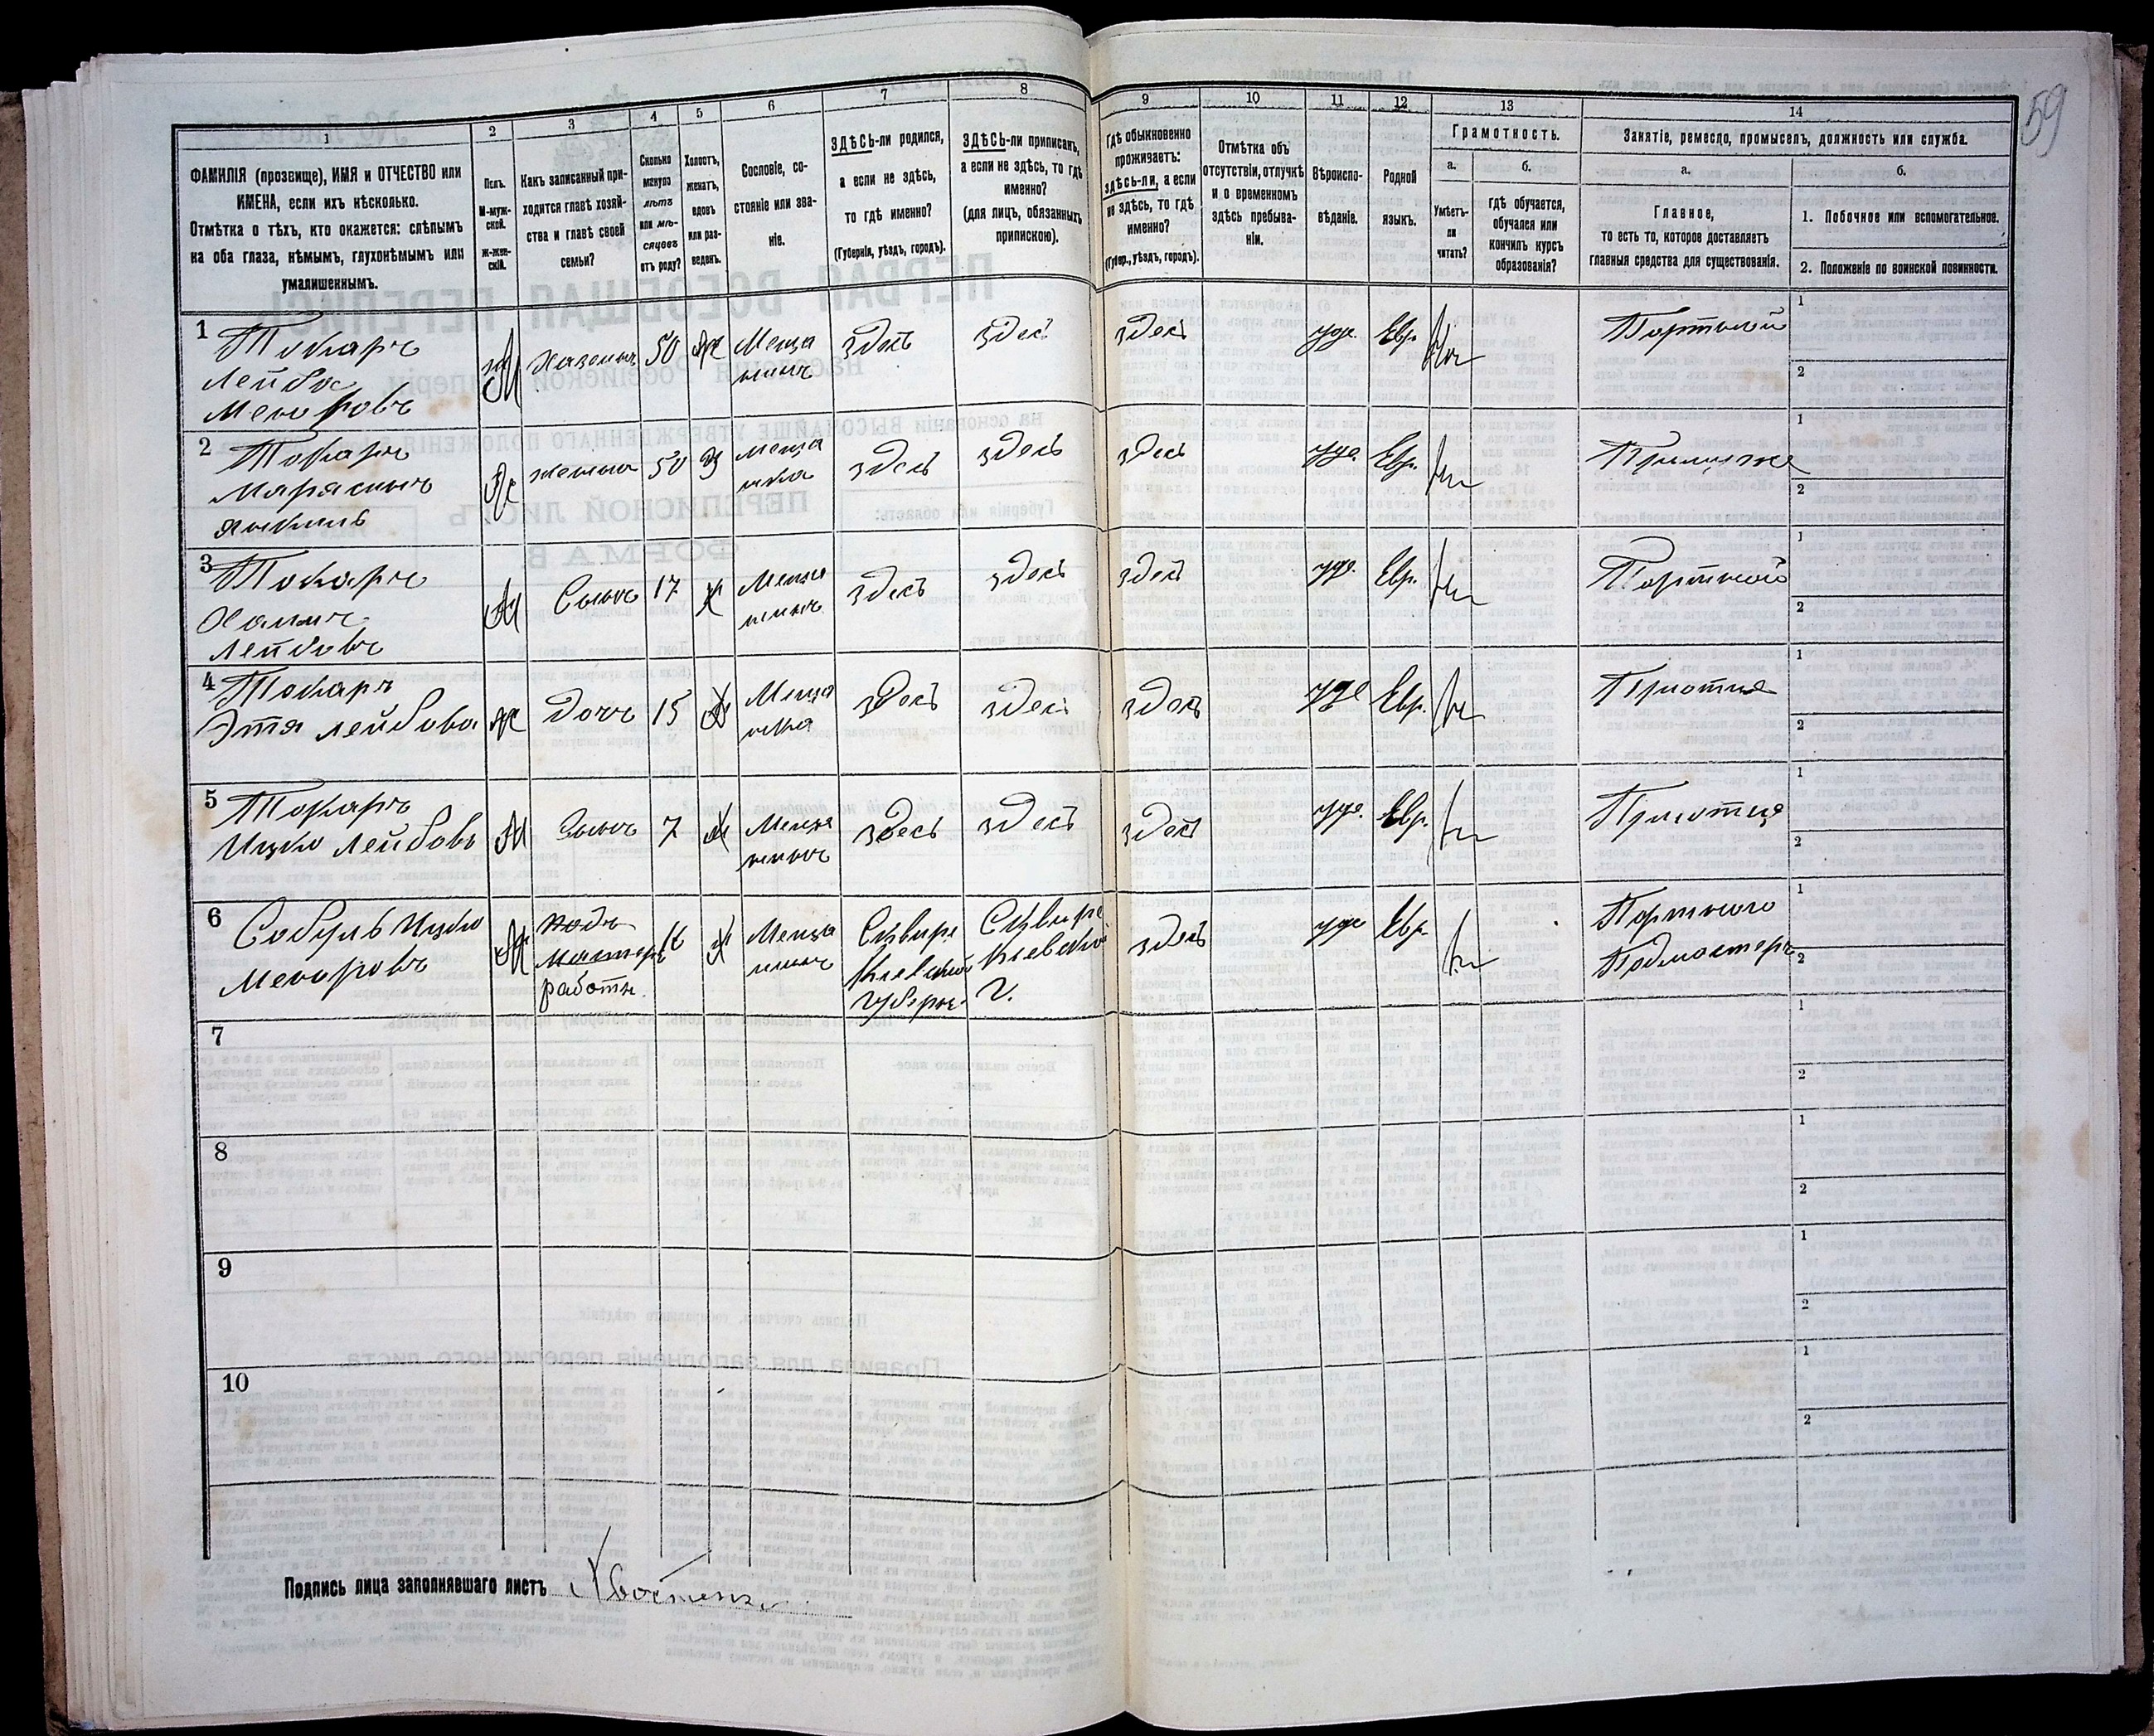 59
1
2
3
4
5
6
7
8
9
10
11
12
13
14
ФАМИЛІЯ (прозвище), ИМЯ и ОТЧЕСТВО или
ИМЕНА, если ихъ нѣсколько.
Отмѣтка о тѣхъ, кто окажется: слѣпымъ
на оба глаза, нѣмымъ, глухонѣмымъ или
умалишеннымъ.
Полъ.
М-муж-
ской.
Ж-жен-
скій.
Какъ записанный при-
ходится главѣ хозяй-
ства и главѣ своей
семьи?
Сколько
минуло
лѣтъ
или мѣ-
сяцевъ
отъ роду?
Холостъ,
женатъ,
вдовъ
или раз-
веденъ.
Сословіе, со-
стояніе или зва-
ніе.
ЗДѢСЬ-ли родился,
а если не здѣсь,
то гдѣ именно?
(Губернія, уѣздъ, городъ).
ЗДѢСЬ-ли приписанъ,
а если не здѣсь, то гдѣ
именно?
(для лицъ, обязанныхъ
припискою).
Гдѣ обыкновенно
проживаетъ:
здѣсь-ли, а если
не здѣсь, то гдѣ
именно?
(Губер., уѣздъ, городъ).
Отмѣтка объ
отсутствіи, отлучкѣ
и о временномъ
здѣсь пребыва-
ніи.
Вѣроиспо-
вѣданіе.
Родной
языкъ.
Грамотность.
а.
б.
Умѣетъ-
ли
читать?
гдѣ обучается,
обучался или
кончилъ курсъ
образованія?
Занятіе, ремесло, промыселъ, должность или служба.
а.
б.
Главное,
то есть то, которое доставляетъ
главныя средства для существованія.
1. Побочное или вспомогательное.
2. Положеніе по воинской повинности.
1
Токарь
Лейба
Меюровъ
М
Хазеинъ
50
Ж
Меща
нинъ
здесь
здесь
здесь
іуде.
Евр.
Портной
1
2
2
Токарь
Ж
жена
50
З
меща
нка
здесь
здесь
здесь
іуде.
Евр.
Примуже
1
2
3
Токарь
Хаимъ
Лейбовъ
М
Сынъ
17
Х
Меща
нинъ
здесь
здесь
здесь
іуде.
Евр.
Портной
1
2
4
Токарь
Этя Лейбова
Ж
Дочь
15
Меща
нка
здесь
здесь
здесь
іуде
Евр.
Приотце
1
2
5
Токарь
Ицко Лейбовъ
М
Сынъ
7
Х
Меща
нинъ
здесь
здесь
здесь
іуде.
Евр.
Приотце
1
2
6
Собуль Ицко
Меюровъ
М
подъ
Мастеръ
работн.
16
Х
Меща
нинъ
Сквире
Киевской
Губерн.
Сквире
Киевской
Г.
здесь
іуде
Евр.
Портного
Подмастеръ
1
2
7
1
2
8
1
2
9
1
2
10
1
2
Подпись лица заполнявшаго листъ